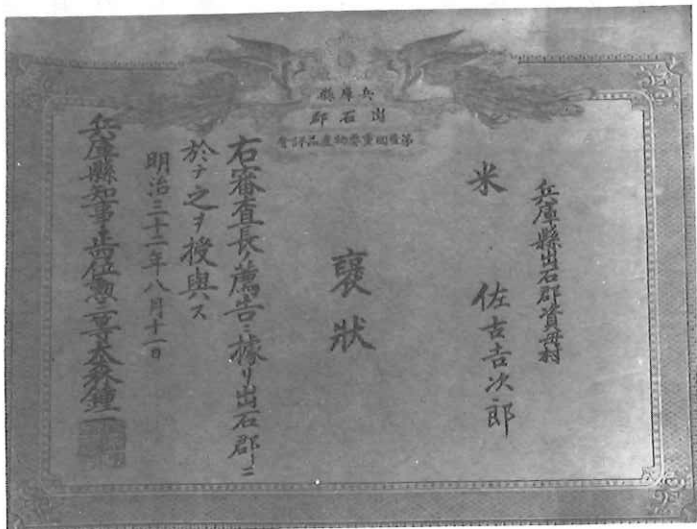 兵庫縣
出石郡
第壹回重要物産品評會
兵庫縣出石郡資母村
米　佐古吉次郎
褒狀
右審査長ノ薦告ニ據リ出石郡ニ
於テ之ヲ授與ス
明治三十二年八月十二日
兵庫縣知事正五位勲三等大森鍾一